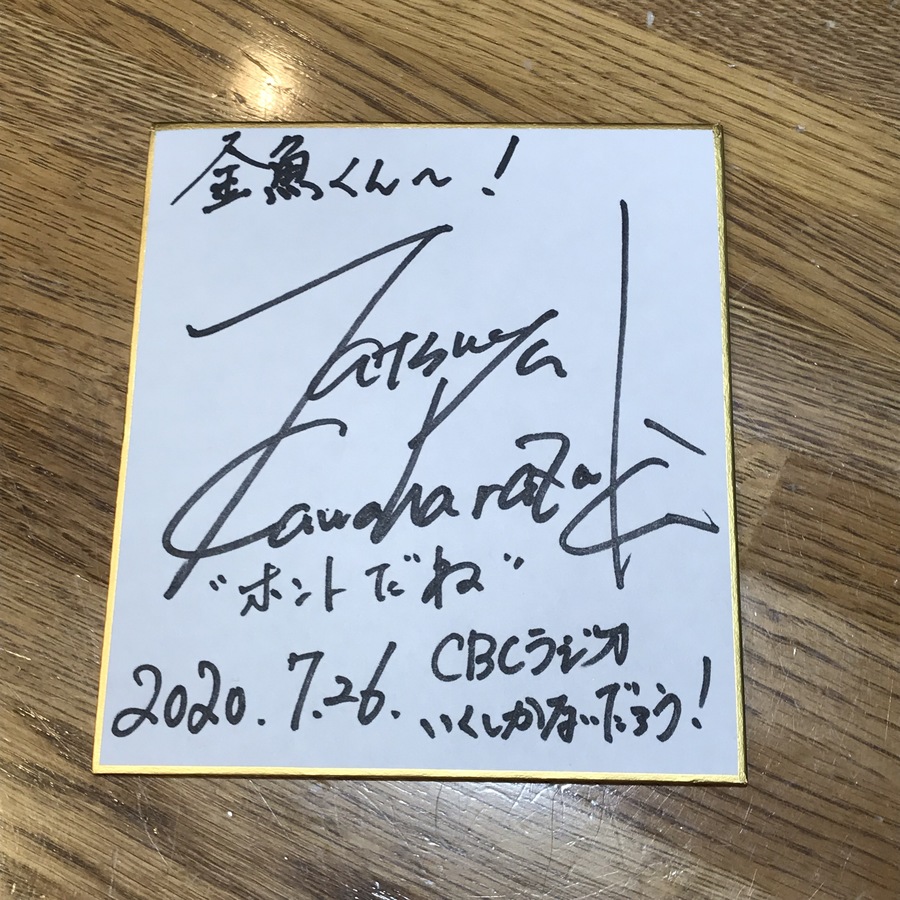 金魚くん〜!
Tatsuya
Kawaharazaki
"ホントだね"
2020.7.26.
CBCラジオ
いくしかないだろう!